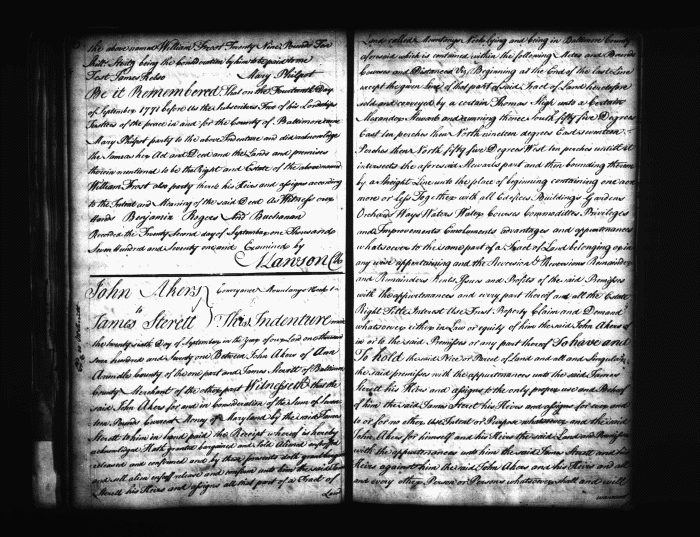 the above named William Frost Twenty Nine Pounds Ten
being the Consideration by him to be paid to me
Test James Kelso Mary Philpot
Be it Remembered that on the Fourteenth Day
of September 1771 before us the Subscribers Two of his Lordships
Justices of the peace in and for the County of Baltimore came
Mary Philpot party to the above Indenture and did acknowledge
the same as her Act and Deed and the Lands and premises
therein mentioned to be the Right and Estate of the above named
William Frost also party thereto his Heirs and assigns according
to the Intent and Meaning of the said Deed As Witness our
Hands Benjamin Rogers And Buchanan
Recorded the Twenty Second day of September one Thousand
Seven Hundred and Seventy one and Examined by
A Lawson Clk
John Akers Conveyance
to
James Sterett This Indenture made
the twenty sixth Day of September in the year of our Lord one thousand
seven hundred and seventy one Between John Akers of Ann
Arundle County of the one part and James Sterett of Baltimore
County Merchant of the other part Witnesseth that the
said John Akers for and in Consideration of the Sum of
Pounds Current Money of Maryland by the said James
Sterett to him in hand paid the Receipt whereof is hereby
acknowledged Hath granted bargained and sold Aliened enfeoffed
released and confirmed and by these presents doth grant bargain
and sell alien enfeoff release and confirm unto him the said James
Sterett his Heirs and assigns all that part of a Tract of
Land
Land called Mountanys Neck lying and being in Baltimore County
aforesaid which is contained within the following Metes and Bounds
Courses and Distances Viz Beginning at the End of the last Line
except the given line of that part of said Tract of Land heretofore
sold and conveyed by a certain Thomas High unto a Certain
Alexander Stewart and running thence South fifty five Degrees
East ten perches then North nineteen degrees East
Perches then North fifty five Degrees West ten perches until it
intersects the aforesaid Stewarts part and then bounding thereon
by a straight Line unto the place of beginning containing one acre
more or less Together with all Edifices Buildings Gardens
Orchards Ways Waters Water Courses Commodities Privileges
and Improvements Emoluments advantages and appurtenances
whatsoever to the same part of a Tract of Land belonging or in
any wise appertaining and the Reversion & Reversions Remainder
and Remainders Rents Issues and Profits of the said Premisses
with the appurtenances and every part thereof and all the Estate
Right Title Interest Use Trust Property Claim and Demand
whatsoever either in Law or equity of him the said John Akers of
in or to the said Premises or any part thereof To have and
To hold the said Piece or Parcel of Land and all and Singular
the said premises with the appurtenances unto the said James
Sterett his Heirs and assigns to the only proper use and Behoof
of him the said James Sterett his Heirs and assigns for ever and
to or for no other Use Intent or Purpose whatsoever and the said
John Akers for himself and his Heirs the said Land and Premises
with the appurtenances unto him the said James Sterett and his
Heirs against him the said John Akers and his Heirs and all
and every other Person or Persons whatsoever shall and will
warrant